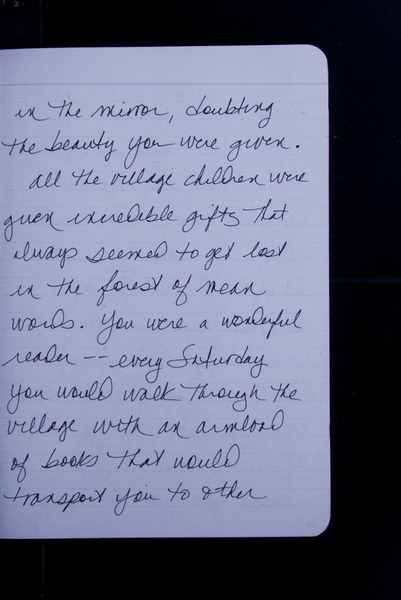 in the mirror, doubting
the beauty you were given.
all the village children were
given incredible gifts that
always seemed to get lost
in the forest of mean
words. You were a wonderful
reader -- every Saturday
you would walk through the
village with an armload
of books that would
transport you to other